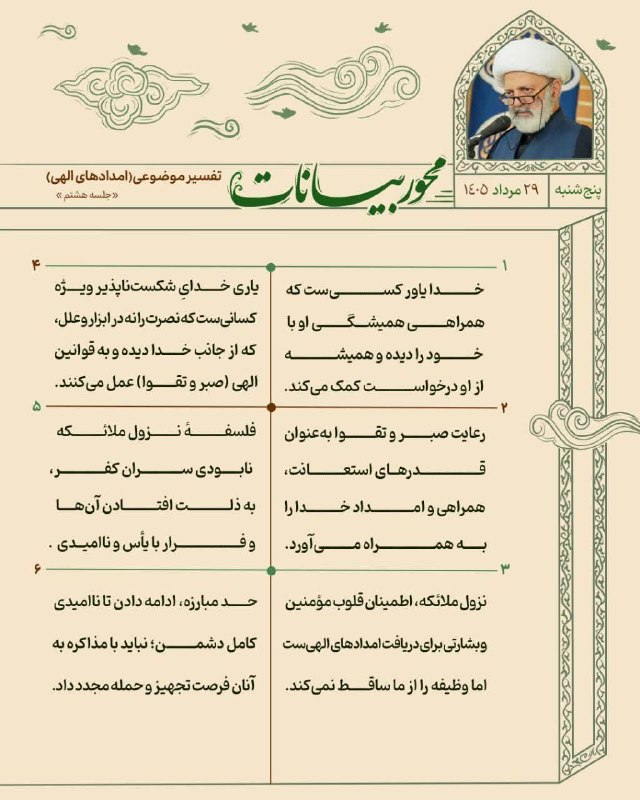 پنج‌شنبه
۲۹ مرداد ۱۴۰۵
محور بیانات
تفسیر موضوعی (امدادهای الهی)
«جلسه هشتم»
۱
خدا یاور کسی‌ست که
همراهی همیشگی او با
خود را دیده و همیشه
از او درخواست کمک می‌کند.
۲
رعایت صبر و تقوا به‌عنوان
قدرهای استعانت،
همراهی و امداد خدا را
به همراه می‌آورد.
۳
نزول ملائکه، اطمینان قلوب مؤمنین
و بشارتی برای دریافت امدادهای الهی‌ست
اما وظیفه را از ما ساقط نمی‌کند.
۴
یاری خدایِ شکست‌ناپذیر ویژه
کسانی‌ست که نصرت را نه در ابزار و علل،
که از جانب خدا دیده و به قوانین
الهی (صبر و تقوا) عمل می‌کنند.
۵
فلسفهٔ نزول ملائکه
نابودی سران کفر،
به ذلت افتادن آن‌ها
و فرار با یأس و ناامیدی .
۶
حد مبارزه، ادامه دادن تا ناامیدی
کامل دشمن؛ نباید با مذاکره به
آنان فرصت تجهیز و حمله مجدد داد.